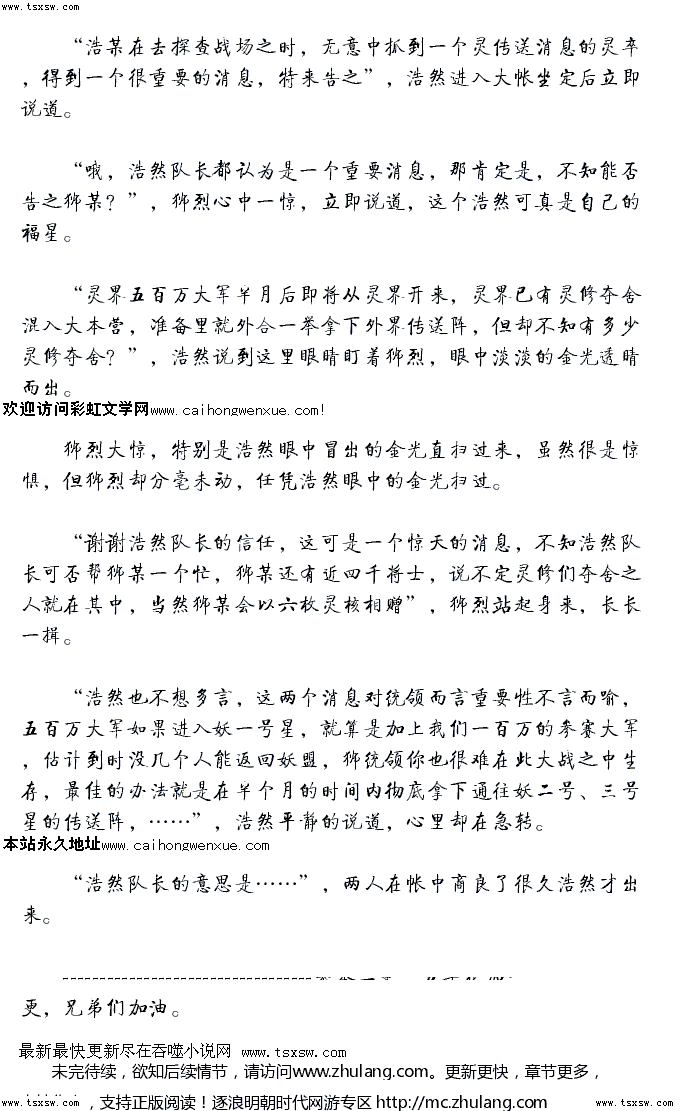 www.tsxsw.com www.tsxsw.com
“浩某在去探查战场之时，无意中抓到一个灵传送消息的灵卒
，得到一个很重要的消息，特来告之”，浩然进入大帐坐定后立即
说道。
“哦，浩然队长都认为是一个重要消息，那肯定是，不知能否
告之狮某？”，狮烈心中一惊，立即说道，这个浩然可真是自己的
福星。
“灵界五百万大军半月后即将从灵界开来，灵界已有灵修夺舍
混入大本营，准备里就外合一举拿下外界传送阵，但却不知有多少
灵修夺舍？”，浩然说到这里眼睛盯着狮烈，眼中淡淡的金光透睛
而出。
欢迎访问彩虹文学网www.caihongwenxue.com!
狮烈大惊，特别是浩然眼中冒出的金光直扫过来，虽然很是惊
惧，但狮烈却分毫未动，任凭浩然眼中的金光扫过。
“谢谢浩然队长的信任，这可是一个惊天的消息，不知浩然队
长可否帮狮某一个忙，狮某还有近四千将士，说不定灵修们夺舍之
人就在其中，当然狮某会以六枚灵核相赠”，狮烈站起身来，长长
一揖。
“浩然也不想多言，这两个消息对统领而言重要性不言而喻，
五百万大军如果进入妖一号星，就算是加上我们一百万的参赛大军
，估计到时没几个人能返回妖盟，狮统领你也很难在此大战之中生
存，最佳的办法就是在半个月的时间内彻底拿下通往妖二号、三号
星的传送阵，……”，浩然平静的说道，心里却在急转。
本站永久地址www.caihongwenxue.com
“浩然队长的意思是……”，两人在帐中商良了很久浩然才出
来。
更，兄弟们加油。
最新最快更新尽在吞噬小说网 www.tsxsw.com
未完待续，欲知后续情节，请访问www.zhulang.com。更新更快，章节更多，
www.tsxsw.com ，支持正版阅读！逐浪明朝时代网游专区 http://mc.zhulang.com www.tsxsw.com